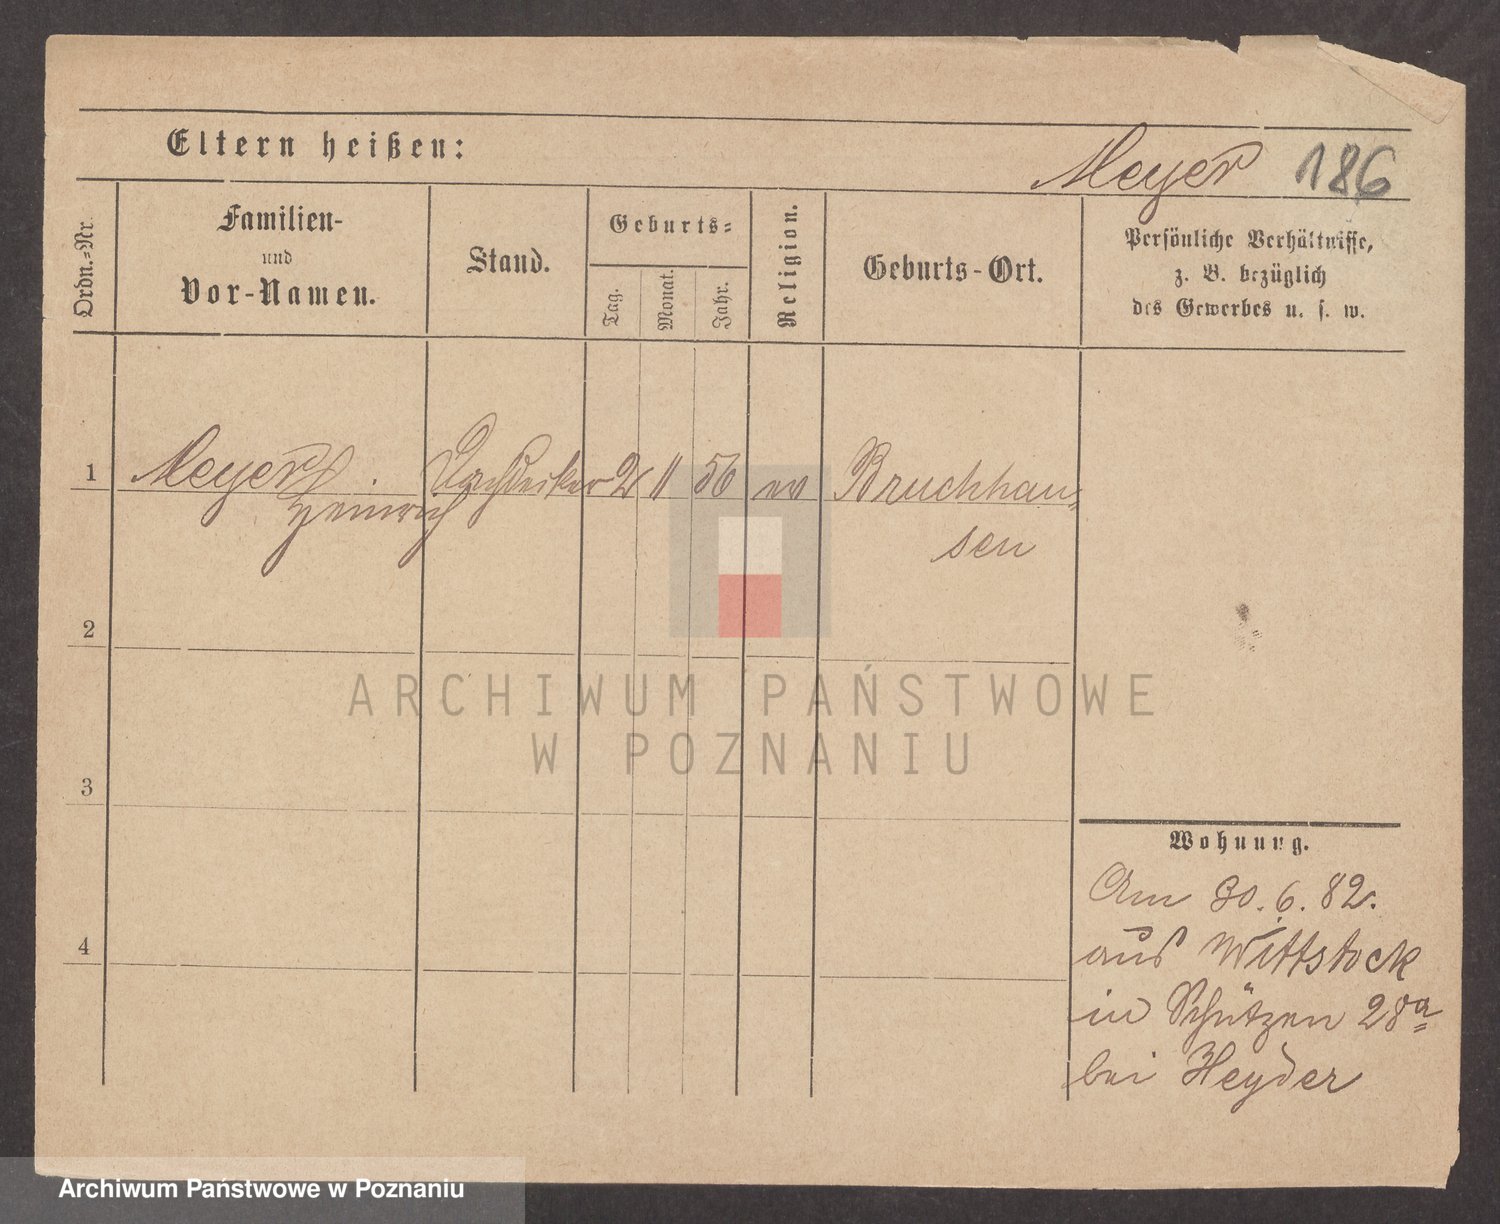 Eltern heißen:
Meyer 186
Ordn.-Nr.
Familien-
und
Vor-Namen.
Stand.
Geburts-
Tag.
Monat.
Jahr.
Religion.
Geburts-Ort.
Persönliche Verhältnisse,
z. B. bezüglich
des Gewerbes u. s. w.
1 Meyer Dachdecker 2 11 56 ev Bruchhau-
Heinrich
sen
2
3
4
Wohnung.
Am 30.6.82.
aus Wittstock
in Schützen 28a
bei Heyder
ARCHIWUM PAŃSTWOWE
W POZNANIU
Archiwum Państwowe w Poznaniu